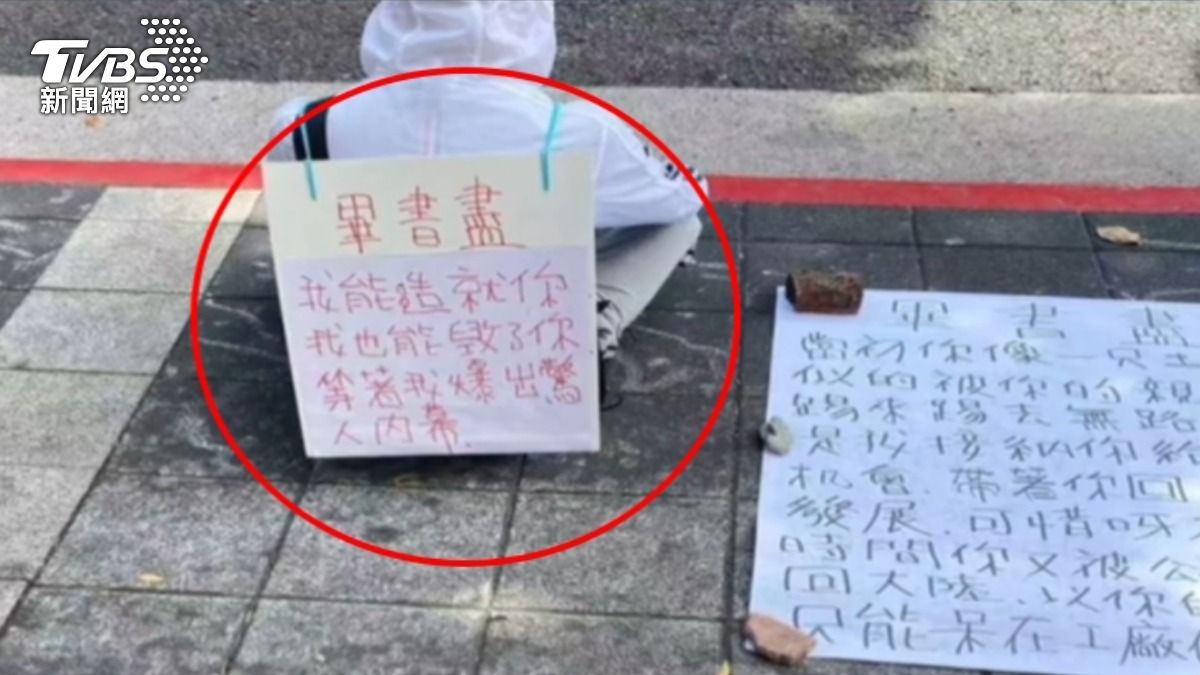 TVBS
新聞網
畢書盡
我能造就你
我也能毀了你
等著我爆出驚
人內幕.
畢書盡
當初你像一
似的被你的親
踢來踢去無路
是我接納你給
机會.帶著你回
發展.可惜呀
時間你又被公
回大陸.以你
只能呆在工廠